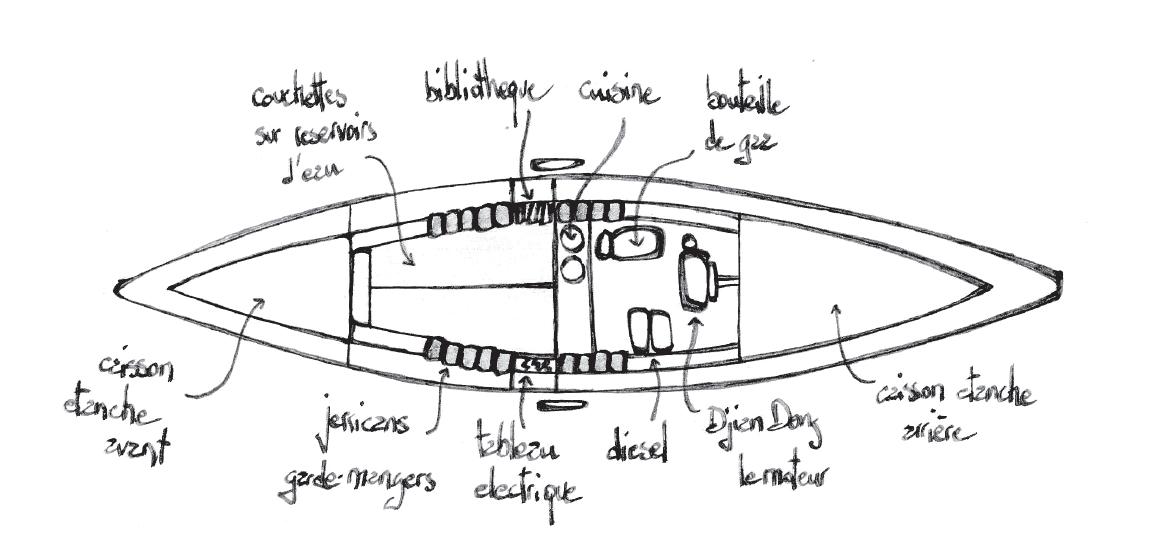 couchettes
sur reservoirs
d'eau
bibliotheque
cuisine
bouteille
de gaz
caisson
etanche
avant
jerricans
garde-mangers
tableau
electrique
diesel
Djian Dong
le moteur
caisson etanche
arrière